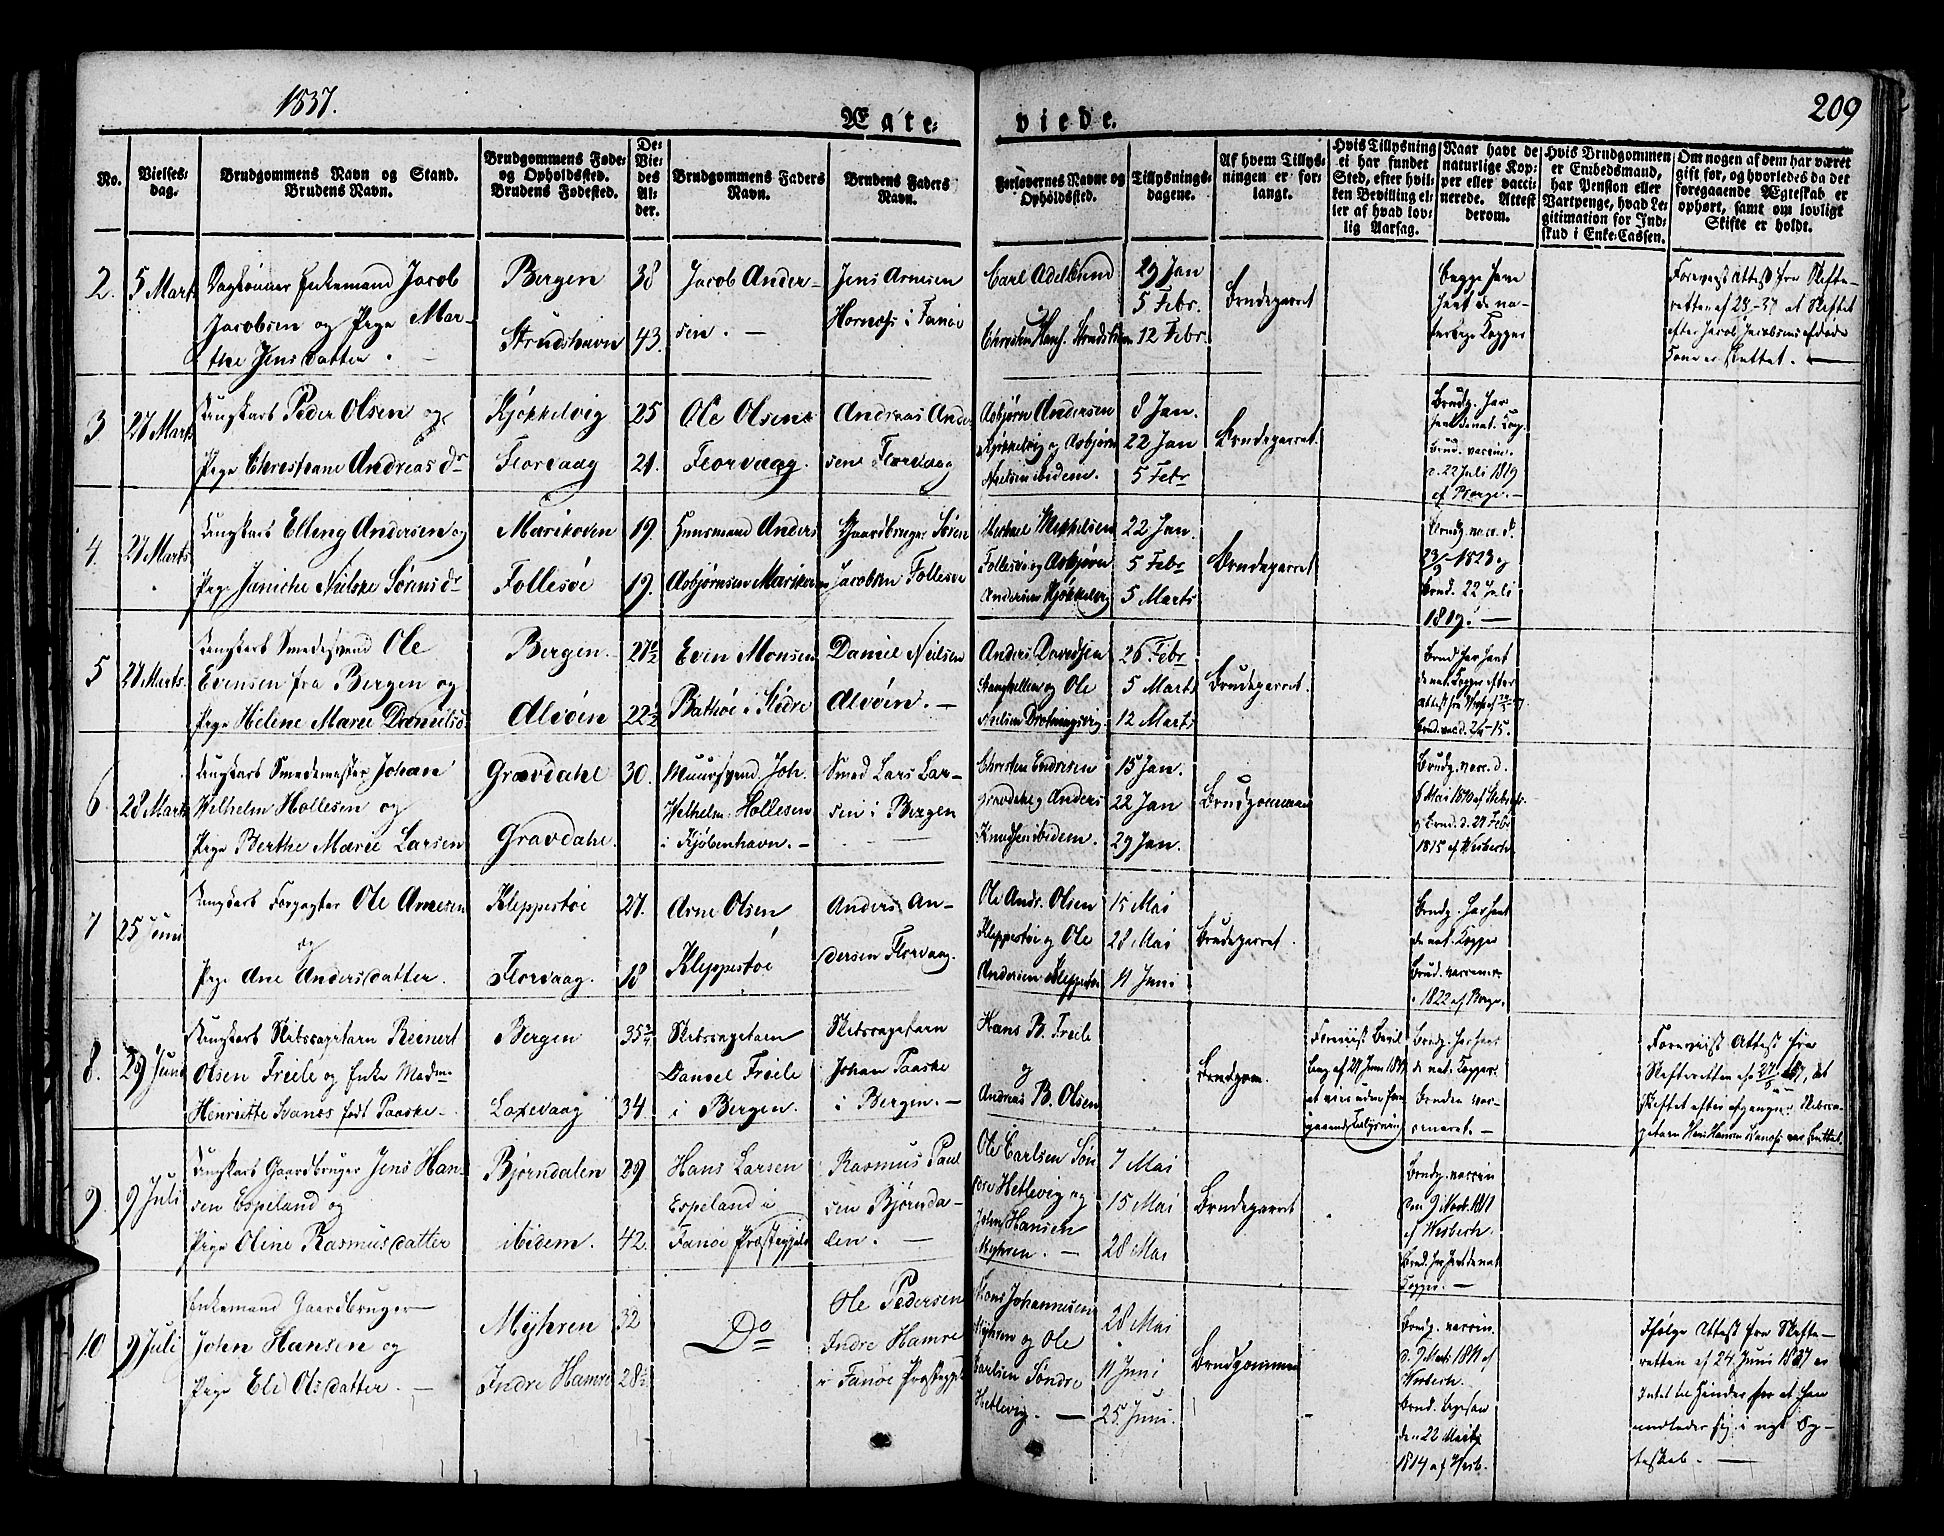 1837.
Ægte-
viede.
209
No.
Vielses-
dag.
Brudgommens Navn og Stand.
Brudens Navn.
Brudgommens Føde-
og Opholdssted.
Brudens Fødested.
De
Vie-
des
Al-
der.
Brudgommens Faders
Navn.
Brudens Faders
Navn.
Forlovernes Navne og
Opholdssted.
Tillysnings-
dagene.
Af hvem Tillys-
ningen er for-
langt.
Hvis Tillysning
ei har fundet
Sted, efter hvil-
ken Bevilling el-
ler af hvad lov-
lig Aarsag.
Naar havt de
naturlige Kop-
per eller vacci-
nerede. Attest
derom.
Hvis Brudgommen
er Embedsmand,
har Pension eller
Vartpenge, hvad Le-
gitimation for Ind-
skud i Enke-Cassen.
Om nogen af dem har været
gift før, og hvorledes da det
foregaaende Ægteskab er
ophørt, samt om lovligt
Skifte er holdt.
2. 5 Marts
Enkemand Jacob
Jacobsen og Pige Mar-
the Jensdatter.
Bergen
Strudshavn
38
43.
Jacob Ander-
sen.
Jens Arnesen
Hornæs i Fanøe
Carl Adelsund
29 Jan
5 Febr.
12 Febr.
Brudeparret
Begge have
havt de na-
turlige Kopper
Foreviist Attest fra Skifte-
retten af at Skiftet
efter Jacob Jacobsens afdøde
Kone er sluttet.
3 27 Marts
Ungkarl Peder Olsen og
Pige Christiane Andreasdr
Kjøkkelvig
Florvaag
25
21.
Ole Olsen
Florvaag.
Andreas Ander
sen Florvaag
Asbjørn Andersen
Kjøkkelvig og Asbjørn
Nielsen ibidem.
8 Jan.
22 Jan
5 Febr
Brudeparret.
Brudg. har
havt de nat. Kop.
Brud. vaccin.
d. 22 Juli 1819
4 27 Marts
Ungkarl Elling Andersen og
Pige Janiche Nielske Sørensdr
Marikoven
Follesøe
19.
19.
Huusmand Anders
Asbjørnsen Marikoven
Gaardbruger Søren
Jacobsen Follesøe
Michael Mikkelsen
Follesøe og Asbjørn
Andersen Kjøkkelvig
22 Jan.
5 Febr
5 Marts
Brudeparret
Brudg. vacc. d.
23/9 1823 og
Brud. 22 Juli
1819.
5 27 Marts.
Ungkarl Smedesvend Ole
Evensen fra Bergen og
Pige Helene Marie Danielsdr
Bergen.
Alvøen
27½
22½
Even Monsen
Batføe i Fledre
Daniel Nielsen
Alvøen.
Anders Davidsen
og Ole
Nielsen Drotningsvig.
26 Febr
5 Marts
12 Marts
Brudeparret.
Brudg har havt
de nat. Kopper efter
6 28 Marts
Ungkarl Smedemester Johan
Wilhelm Hollesen og
Pige Berthe Marie Larsen
Gravdahl
Gravdahl.
30.
Muursvend. Joh.
Wilhelm Hollesen
i Kjøbenhavn.
Smed Lars Lar-
sen i Bergen
Christen Endresen
Gravdahl og Anders
Knudsen ibidem.
15 Jan.
22 Jan
29 Jan.
Brudgommen
Brudg. vacc. d.
og Brud. d. 27 Febr
1815 af Wesberch.
7 25 Juni
Ungkarl Ole Arnesen
og
Pige Ane Andersdatter.
Kleppestøe
Florvaag.
27.
18
Arne Olsen
Kleppestøe
Anders An-
dersen Florvaag.
Ole Andr. Olsen
Kleppestøe og Ole
Andersen Kleppestøe
15 Mai
28 Mai
11 Juni
Brudeparret.
Brudg. har havt
de nat. Kopper
Brud. vaccineret
8. 29 Juni
Ungkarl Skibscapitain Reinert
Olsen Friele og Enke Madme
Henriette Svanøs født Paaske
Bergen
Laxevaag
35
34.
Skibscapitain
Daniel Friele
i Bergen.
Skibscapitain
Johan Paaske
i Bergen.
Hans B. Friele
og
Andreas B. Olsen
Brudgom.
Foreviist Bevil
ling af 24 Juni 1837
at vies uden foregaaende Tillysning
Brudg. har havt
de nat. Kopper.
Bruden vac-
cineret.
Foreviist Attest fra
Skifteretten af 27/5 1837, at
Skiftet efter afgangne Skibsca-
pitain var sluttet.
9. 9 Juli
Ungkarl Gaardbruger Jens Han-
sen Espeland og
Pige Oline Rasmusdatter
Bjørndalen
ibidem.
29
42.
Hans Larsen
Espeland i
Fanøe Præstegjeld
Rasmus Paul
sen Bjørnda-
len.
Ole Carlsen Søn
dre Hetlevig og
John Hansen
Myhren.
7 Mai
15 Mai
28 Mai
Brudeparret
Brudg. vaccin
den 9 Novb. 1811
af Wesberch
Brud. har havt de nat
Kopper.
10 9 Juli
Enkemand Gaardbruger
John Hansen og
Pige Eli Olsdatter.
Myhren
Indre Hamre
32
28½
Do
Ole Pedersen
Indre Hamre
i Fanøe Præstegjeld
Hans Johannesen
Myhren og Ole
Carlsen Søndre
Hetlevig.
28 Mai
11 Juni
25. Juni.
Brudgommen
Brudg. vaccin.
d. 9 Marts 1811 af
Wesberch.
Brud. ligesaa
den 22 Marts
1814 af Wesb.
Ifølge Attest fra Skifte-
retten af 24. Juni 1837 er
Intet til Hinder for at han
indlader sig i nyt Æg-
teskab.